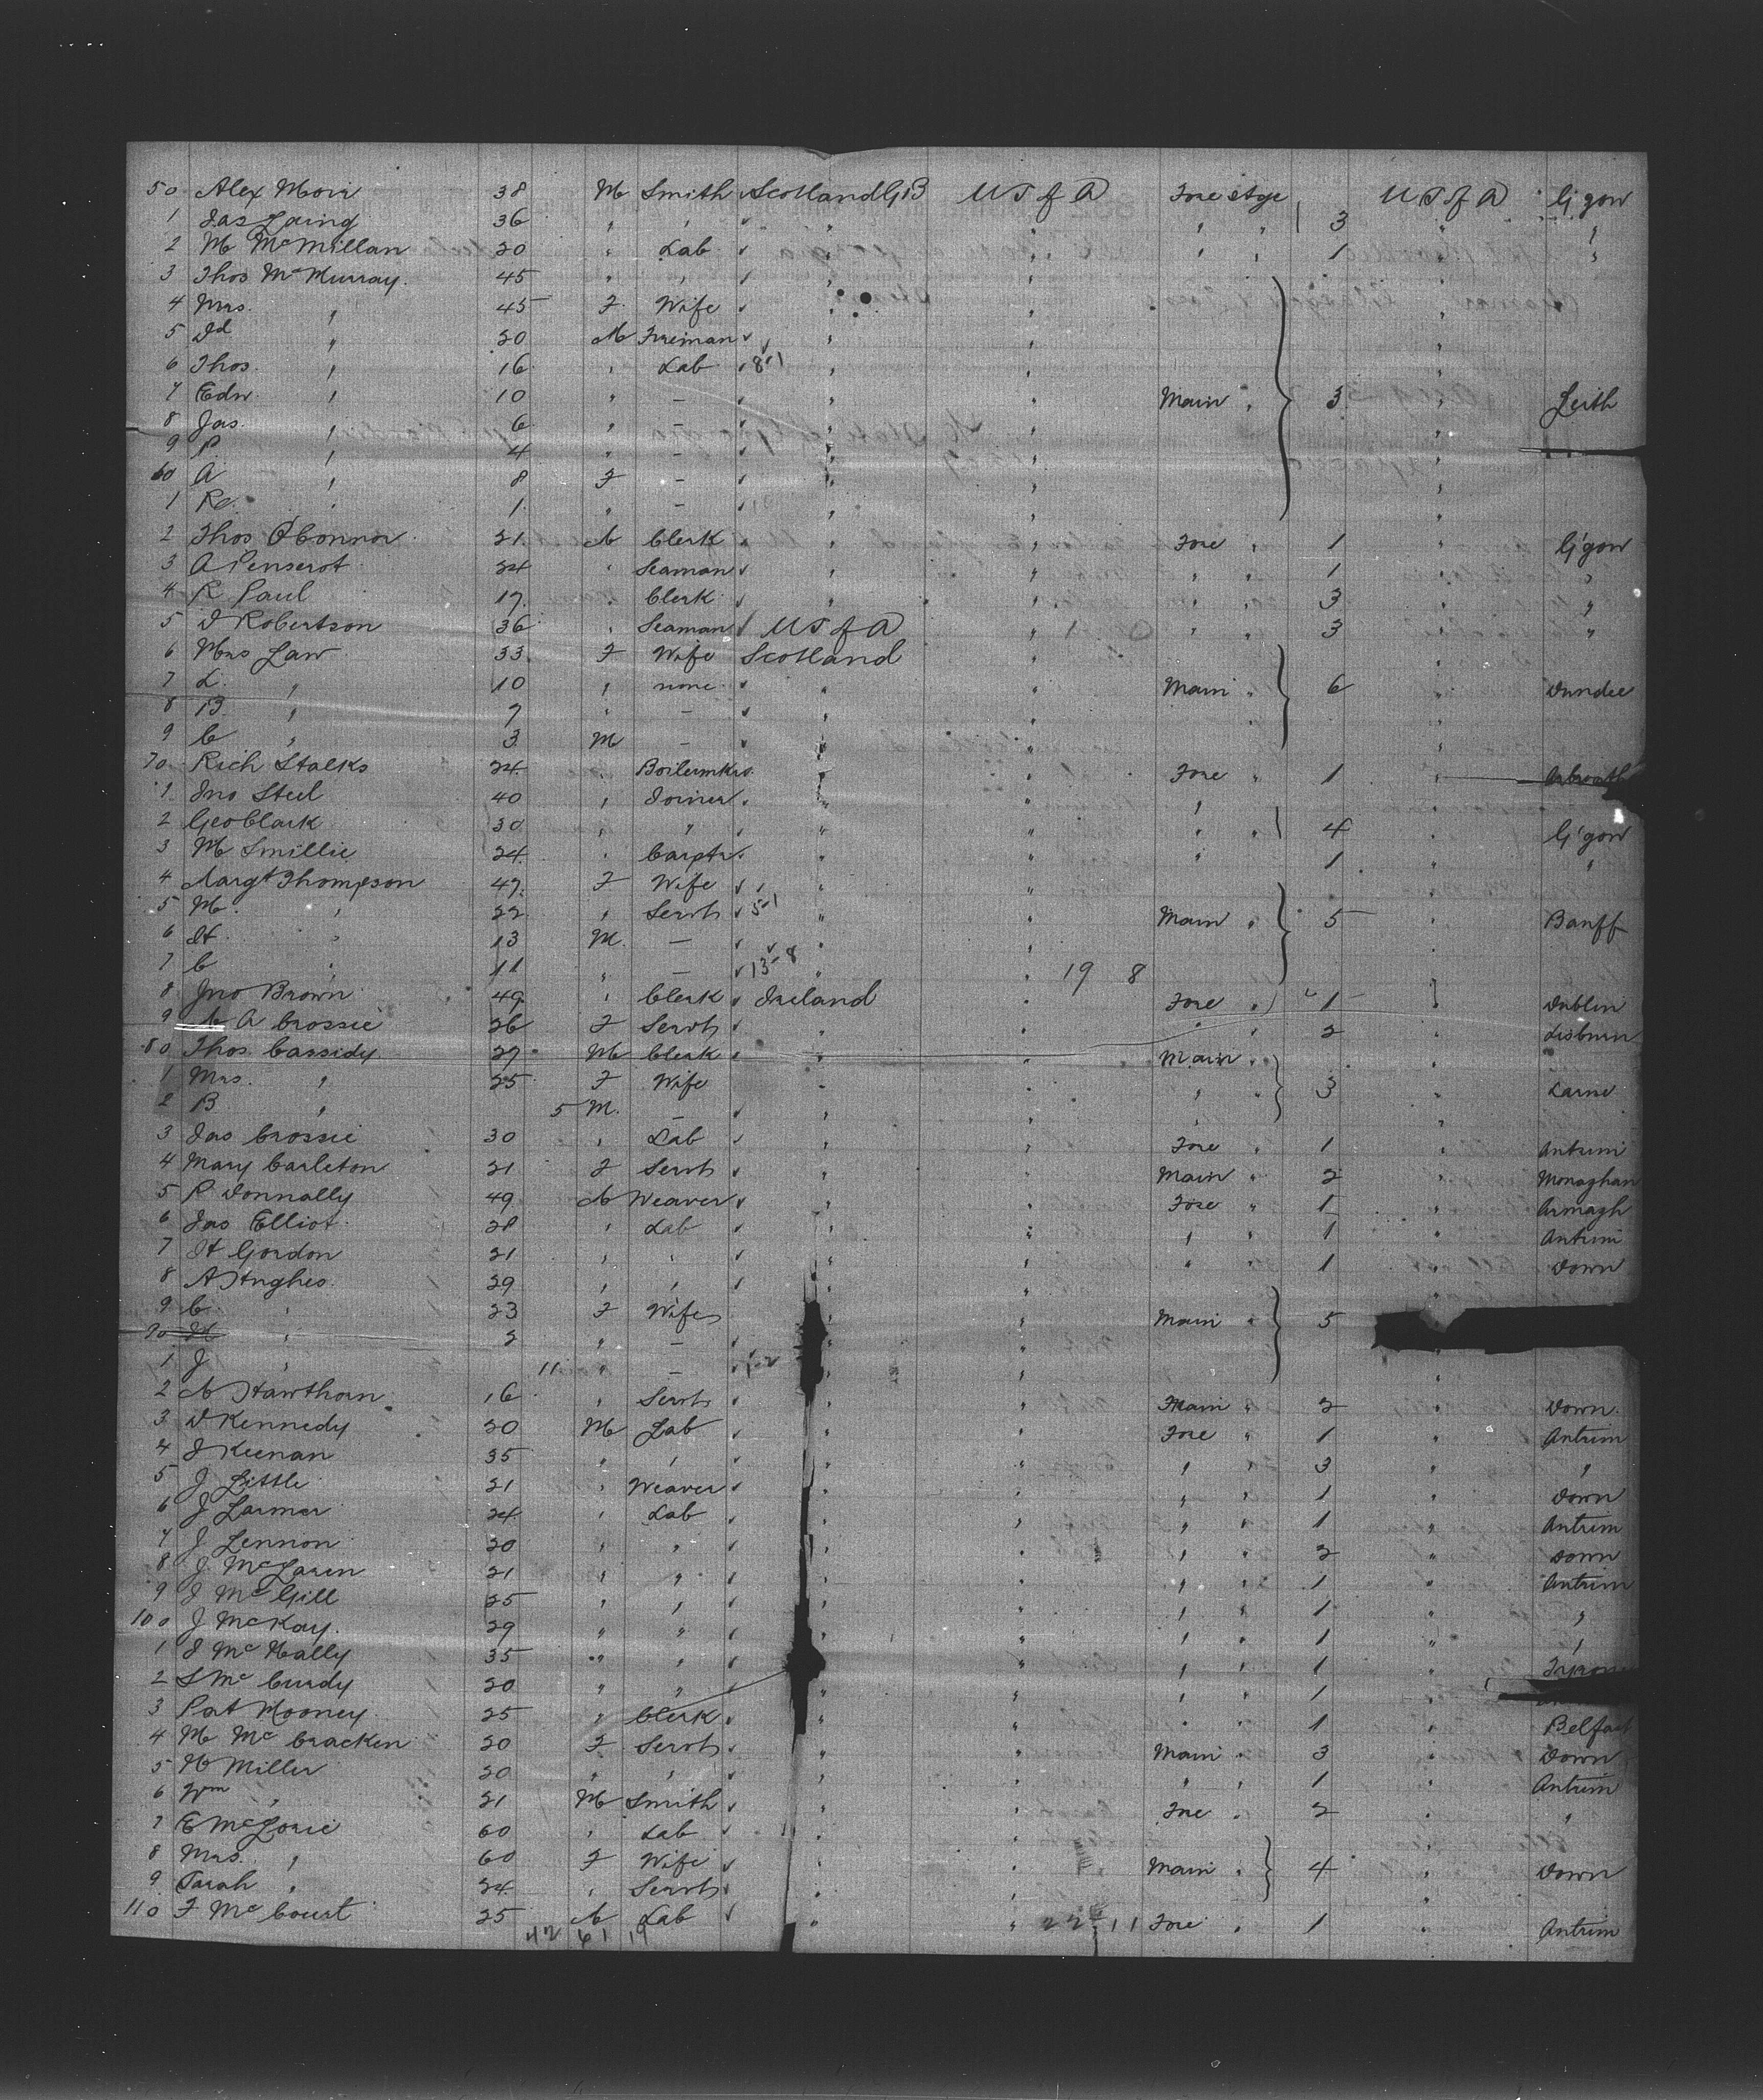 50 Alex Moir 38 M Smith Scotland GB U S of A Fore stge U S of A G'gow
1 Jas Laing 36 " " " " " " 3 " "
2 M McMillan 20 " Lab " " " " 1 " "
3 Thos McMurray 45 " " " "
4 Mrs. " 45 F Wife " " "
5 Jd " 20 M Fireman " " "
6 Thos. " 16 " Lab 8-1 " "
7 Edw. " 10 " - " " Main " 3 " Leith
8 Jas. " 6 " - " " "
9 P. " 4 " - " " "
60 A " 8 F - " " "
1 " 1 " - " " "
2 Thos O'Connor 21 M Clerk " " Fore " 1 " G'gow
3 A Penserot 24 " Seaman " " " " 1 " "
4 R Paul 17 " Clerk " " " " 3 " "
5 D Robertson 36 " Seaman U S of A " " " 3 " "
6 Mrs Law 33 F Wife Scotland " "
7 L. " 10 " none " " Main " 6 " Dundee
8 B. " 7 " - " " "
9 C " 3 M - " " "
70 Rich Stalks 24 " Boilermkr " " Fore " 1 " Arbroath
1 Jno Steel 40 " Joiner " " "
2 Geo Clark 30 " " " " " " 4 " G'gow
3 M Smillie 24 " Carptr " " " 1 " "
4 Margt Thompson 47 F Wife " " "
5 M. " 22 " Servt 5-1 " " Main " 5 " Banff
6 " 13 M. - " " "
7 C " 11 " - 13-8 " " 19 8
8 Jno Brown 49 " Clerk Ireland " Fore " 1 " Dublin
9 A Crossie 26 F Servt " " " " 2 " Lisburn
80 Thos. Cassidy 27 M Clerk " " Main "
1 Mrs. " 25 F Wife " " " " 3 " Larne
2 B " 5 M. - " " "
3 Jas Crossie 30 " Lab " " Fore " 1 " Antrim
4 Mary Carleton 21 F Servt " " Main " 2 " Monaghan
5 P Donnally 49 M Weaver " " Fore " 1 " Armagh
6 Jas Elliot 28 " Lab " " " " 1 " Antrim
7 H Gordon 21 " " " " " " 1 " Down
8 A Hughes 29 " " " " "
9 C " 23 F Wife " " Main " 5
90 " 2 " - "
1 J " 11 " - 1-2 " "
2 A Hawthorn 16 " Servt " " Main " 2 " Down
3 D Kennedy 20 M Lab " " Fore " 1 " Antrim
4 J Keenan 35 " " " " " 3 " "
5 J Little 21 " Weaver " " " " 1 " Down
6 J Larmer 24 " Lab " " " " 1 " Antrim
7 J Lennon 20 " " " " " " 2 " Down
8 J McLaren 21 " " " " " " 1 " Antrim
9 J McGill 25 " " " " " " 1 " "
100 J McKay 29 " " " " " " 1 " "
1 J McNally 35 " " " " " " 1 " Tyrone
2 S McCurdy 20 " " " " " " 1 "
3 Pat Mooney 25 " Clerk " " " " 1 " Belfast
4 M McCracken 20 F Servt " " Main " 3 " Down
5 M Miller 20 " " " " " " 1 " Antrim
6 Wm " 21 M Smith " " Fore " 2 " "
7 E McLorie 60 " Lab " "
8 Mrs. " 60 F Wife " " Main " 4 " Down
9 Sarah " 24 " Servt " " "
110 F McCourt 25 M Lab " " 22 11 Fore " 1 " Antrim
42 61 19